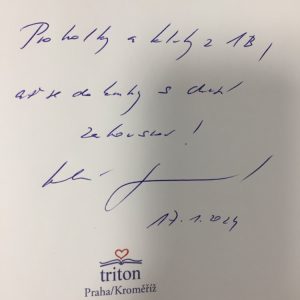 Pro holky a kluky z 1B,
ať se do knihy s chutí
zakousnou!
17.1.2024
triton
Praha/Kroměříž